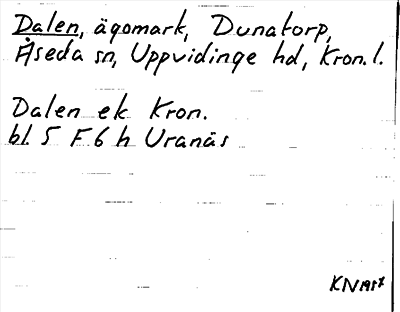 Dalen, ägomark, Dunatorp,
Åseda sn, Uppvidinge hd, Kron.l.
Dalen ek Kron.
bl. 5 F 6 h Uranäs
KN 1917